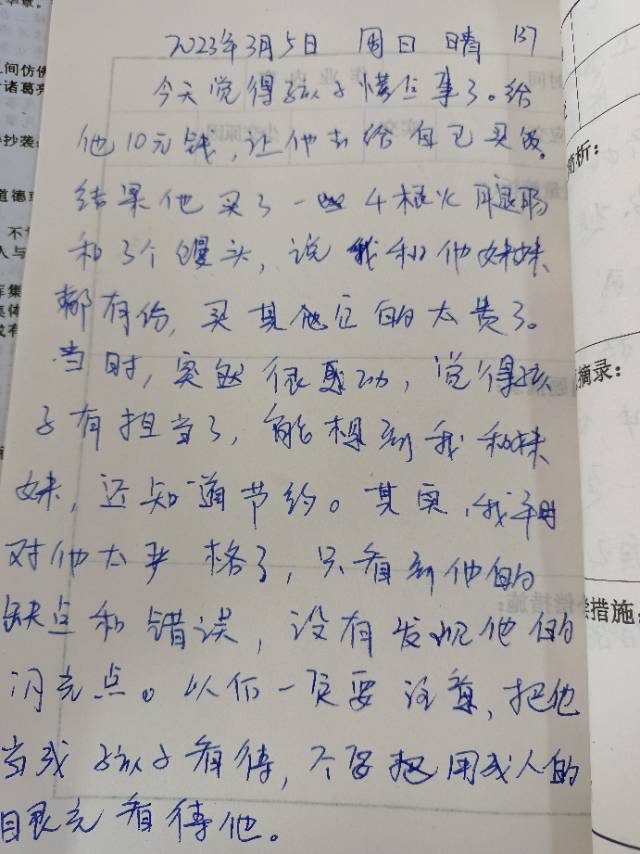 2023年3月5日 周日 晴 137
今天觉得孩子懂点事了。给
他10元钱,让他去给自己买饭。
结果他买了一 4根火腿肠
和3个馒头,说我和他妹妹
都有份,买其他的太贵了。
当时,突然很感动,觉得孩
子有担当了,能想到我和妹
妹,还知道节约。其实,我平时
对他太严格了,只看到他的
缺点和错误,没有发现他的
闪光点。以后一定要注意,把他
当成孩子看待,不要把用成人的
眼光看待他。
间仿佛
诸葛亮
抄袭
道德
简析:
摘录:
措施: